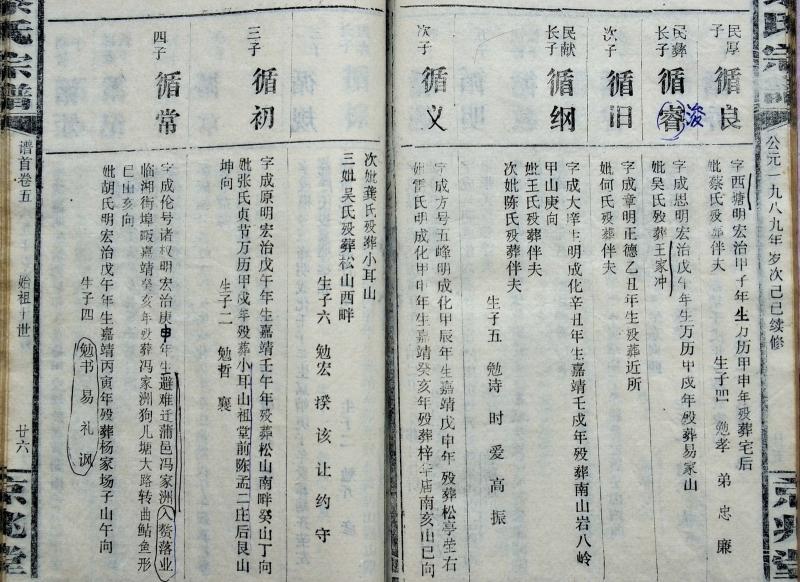 公元一九八九年岁次己巳续修
民厚子 循良
字西塘明宏治甲子年生万历甲申年殁葬宅后
妣蔡氏殁葬伴夫
生子四 勉孝 弟 忠 廉
民彝长子 循睿 浚
字成思明宏治戊午年生万历甲戌年殁葬易家山
妣吴氏殁葬王家冲
次子 循旧
字成章明正德乙丑年生殁葬近所
妣何氏殁葬伴夫
民献长子 循纲
字成大宰生明成化辛丑年生嘉靖壬戌年殁葬南山岩八岭
甲山庚向
妣王氏殁葬伴夫
次妣陈氏殁葬伴夫
生子五 勉诗 时 爱 高 振
次子 循义
字成方号五峰明成化甲辰年生嘉靖戊申年殁葬松亭坐右
妣雷氏明成化甲申年生嘉靖癸亥年殁葬梓年庙南亥山巳向
次妣龚氏殁葬小耳山
三妣吴氏殁葬松山西畔
生子六 勉宏 揆 该 让 约 守
三子 循初
字成原明宏治戊午年生嘉靖壬午年殁葬松山南畔癸山丁向
妣张氏贞节万历甲戌年殁葬小耳山祖堂前陈孟二庄后艮山
坤向
生子二 勉哲 襄
四子 循常
字成伦号诸权明宏治庚申年生避难迁蒲邑冯家洲入赘落业
临湘街埠畈嘉靖癸亥年殁葬冯家洲狗儿塘大路转曲鲇鱼形
巳山亥向
妣胡氏明宏治戊午年生嘉靖丙寅年殁葬杨家场子山午向
生子四 勉书 易 礼 讽
氏宗谱
谱首卷五
始祖十世
廿六
京兆堂